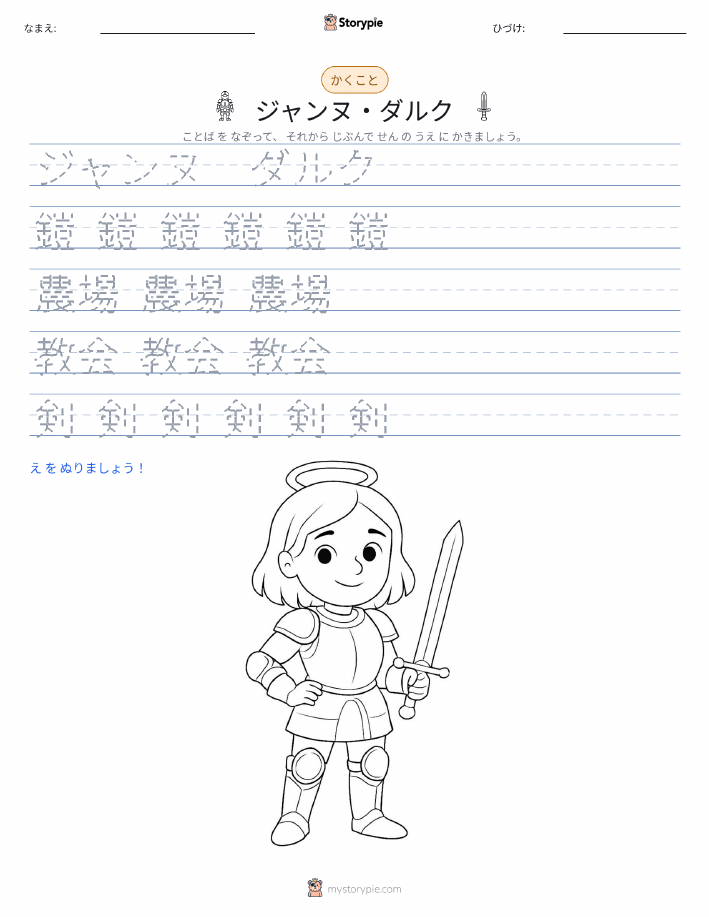 なまえ: Storypie ひづけ:
かくこと
ジャンヌ・ダルク
ことば を なぞって、 それから じぶんで せん の うえ に かきましょう。
ジャンヌ ダルク
鎧 鎧 鎧 鎧 鎧 鎧
農場 農場 農場
教会 教会 教会
剣 剣 剣 剣 剣 剣
え を ぬりましょう！
mystorypie.com